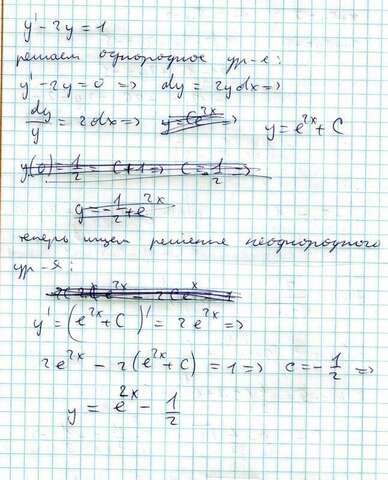 y' - 2y = 1
решаем однородное ур-е:
y' - 2y = 0 => dy = 2ydx =>
dy/y = 2dx => y = Ce^2x => y = e^2x + C
y(0) = 1/2 = C + 1 => C = 1/2 =>
y = -1/2 + e^2x
теперь ищем решение неоднородного
ур-я:
y' = (e^2x + C)' = 2e^2x =>
2e^2x - 2(e^2x + C) = 1 => c = -1/2 =>
y = e^2x - 1/2